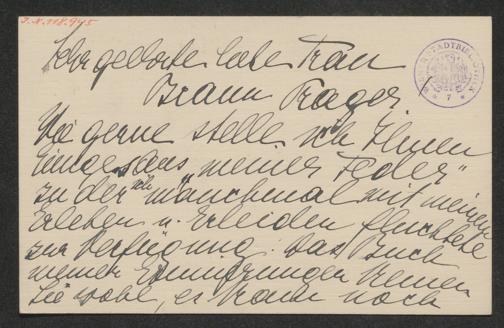 J.N. 118.945
WIENER STADTBIBLIOTHEK
7
Sehr geehrte liebe Frau
Braun Prager.
Wie gerne stelle ich Ihnen
Einiges aus "meiner Feder"
zu der ich manchmal mit meinem
Erleben u. Erleiden flüchtete
zur Verfügung. Das Buch
meiner Erinnerungen kennen
Sie wohl, es kam noch